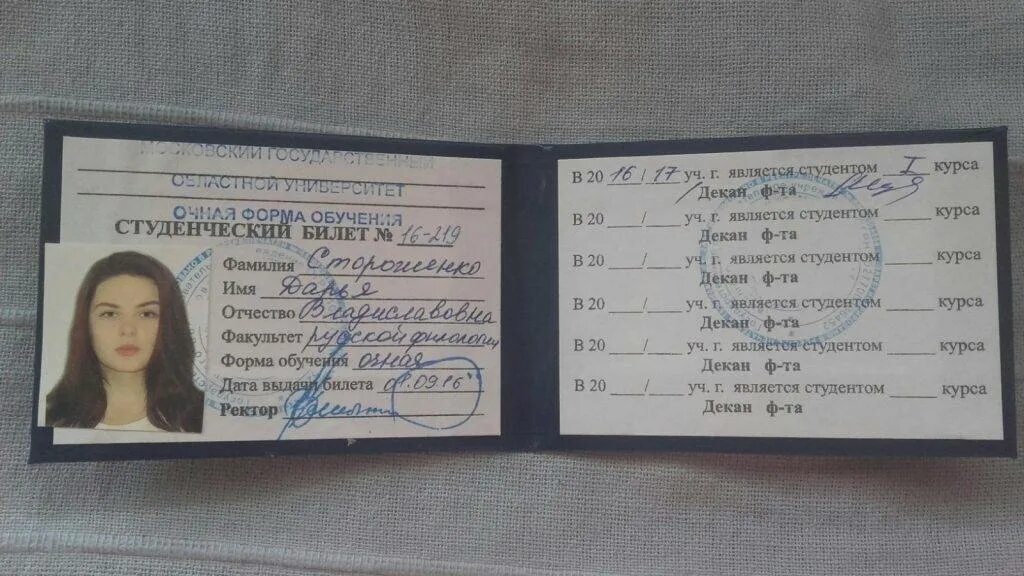 МОСКОВСКИЙ ГОСУДАРСТВЕННЫЙ
ОБЛАСТНОЙ УНИВЕРСИТЕТ
ОЧНАЯ ФОРМА ОБУЧЕНИЯ
СТУДЕНЧЕСКИЙ БИЛЕТ № 16-219
Фамилия Стороженко
Имя Дарья
Отчество Владиславовна
Факультет русской филологии
Форма обучения очная
Дата выдачи билета 01.09.16
Ректор
В 20 16 / 17 уч. г. является студентом I курса
Декан ф-та
В 20 ___/___ уч. г. является студентом ____ курса
Декан ф-та
В 20 ___/___ уч. г. является студентом ____ курса
Декан ф-та
В 20 ___/___ уч. г. является студентом ____ курса
Декан ф-та
В 20 ___/___ уч. г. является студентом ____ курса
Декан ф-та
В 20 ___/___ уч. г. является студентом ____ курса
Декан ф-та